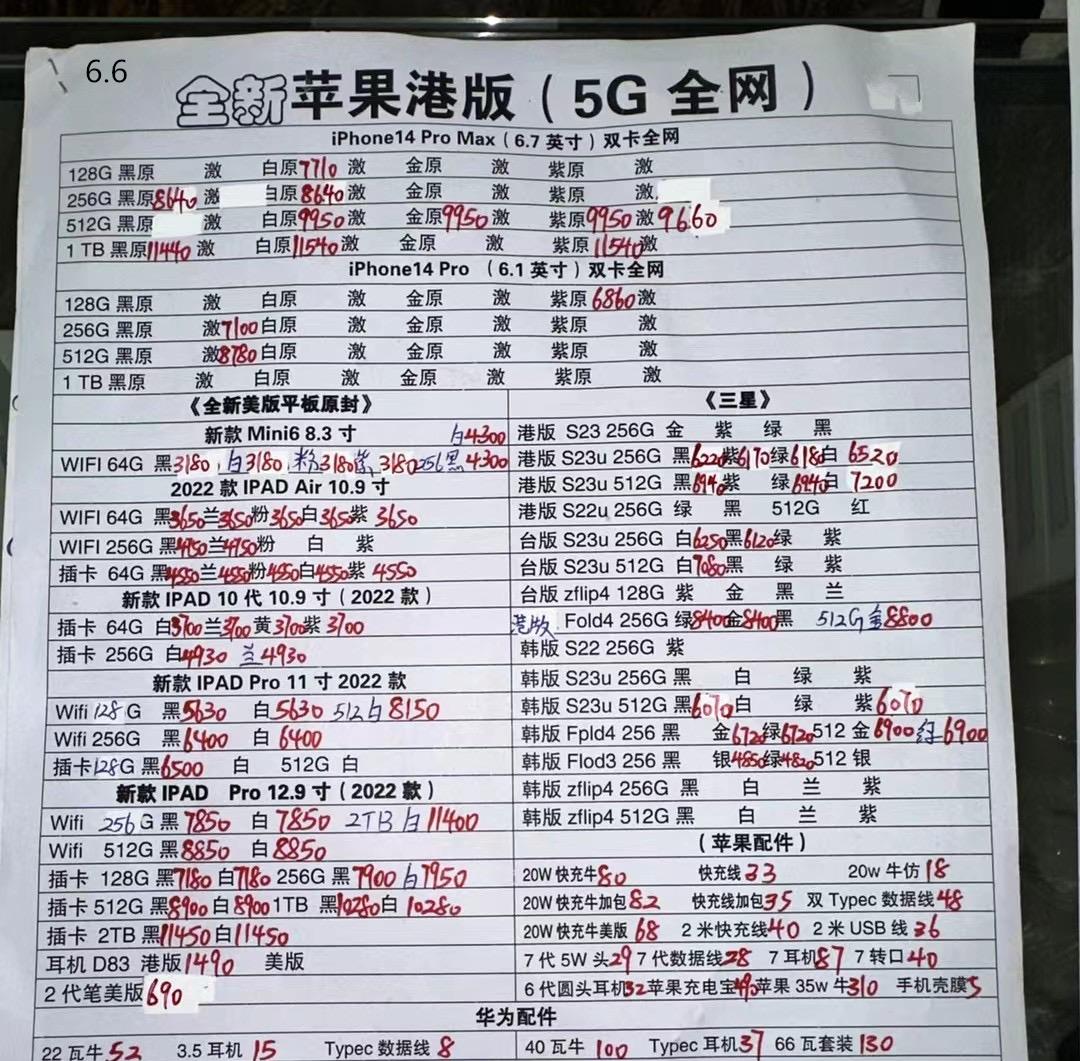 6.6
全新苹果港版（5G 全网）
iPhone14 Pro Max（6.7 英寸）双卡全网
128G 黑原 激 白原7710 激 金原 激 紫原 激
256G 黑原8640 激 白原8640 激 金原 激 紫原 激
512G 黑原 激 白原9950 激 金原9950 激 紫原9950 激9660
1 TB 黑原11440 激 白原11540 激 金原 激 紫原11540 激
iPhone14 Pro （6.1 英寸）双卡全网
128G 黑原 激 白原 激 金原 激 紫原6860 激
256G 黑原 激7100 白原 激 金原 激 紫原 激
512G 黑原 激8780 白原 激 金原 激 紫原 激
1 TB 黑原 激 白原 激 金原 激 紫原 激
《全新美版平板原封》
新款 Mini6 8.3 寸 白4300
WIFI 64G 黑3180 白3180 粉3180 紫3180 256黑4300
2022 款 IPAD Air 10.9 寸
WIFI 64G 黑3650 兰3650 粉3650 白3650 紫3650
WIFI 256G 黑4950 兰4950 粉 白 紫
插卡 64G 黑4550 兰4550 粉4550 白4550 紫4550
新款 IPAD 10 代 10.9 寸（2022 款）
插卡 64G 白3700 兰3700 黄3700 紫3700
插卡 256G 白4930 兰4930
新款 IPAD Pro 11 寸 2022 款
Wifi 128 G 黑5630 白5630 512白8150
Wifi 256G 黑6400 白6400
插卡128G 黑6500 白 512G 白
新款 IPAD Pro 12.9 寸（2022 款）
Wifi 256 G 黑7850 白7850 2TB白11400
Wifi 512G 黑8850 白8850
插卡 128G 黑7180 白7180 256G 黑7900 白7950
插卡 512G 黑8900 白8900 1TB 黑10280 白10280
插卡 2TB 黑11450 白11450
耳机 D83 港版1490 美版
2 代笔美版690
《三星》
港版 S23 256G 金 紫 绿 黑
港版 S23u 256G 黑6220 紫6170 绿6180 白6520
港版 S23u 512G 黑6940 紫 绿6940 白7200
港版 S22u 256G 绿 黑 512G 红
台版 S23u 256G 白6250 黑6120 绿 紫
台版 S23u 512G 白7080 黑 绿 紫
台版 zflip4 128G 紫 金 黑 兰
港版 Fold4 256G 绿8400 金8400 黑 512G金8800
韩版 S22 256G 紫
韩版 S23u 256G 黑 白 绿 紫
韩版 S23u 512G 黑6070 白 绿 紫6070
韩版 Fpld4 256 黑 金6720 绿6720 512 金6900 绿6900
韩版 Flod3 256 黑 银4850 绿4820 512 银
韩版 zflip4 256G 黑 白 兰 紫
韩版 zflip4 512G 黑 白 兰 紫
（苹果配件）
20W 快充牛80 快充线33 20w 牛仿18
20W 快充牛加包82 快充线加包35 双 Typec 数据线48
20W 快充牛美版 68 2 米快充线40 2 米 USB 线36
7 代 5W 头29 7 代数据线28 7 耳机87 7 转口40
6 代圆头耳机32 苹果充电宝 苹果 35w 牛310 手机壳膜5
华为配件
22 瓦牛52 3.5 耳机 15 Typec 数据线 8 40 瓦牛 100 Typec 耳机37 66 瓦套装130